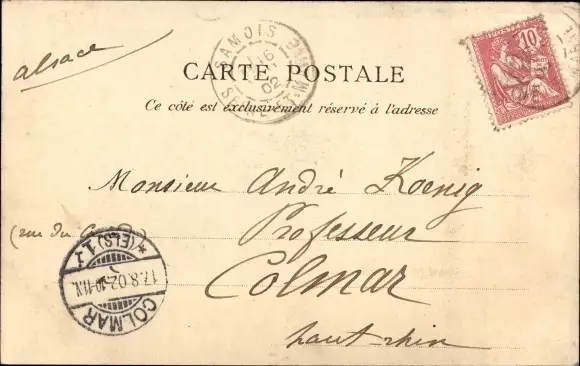 alsace
SAMOIS
16
02
10
CARTE POSTALE
Ce côté est exclusivement réservé à l'adresse
Monsieur André Koenig
(rue du
Professeur
Colmar
haut-rhin
COLMAR
17.8.02. 10-11N.
* (ELS) 1 *